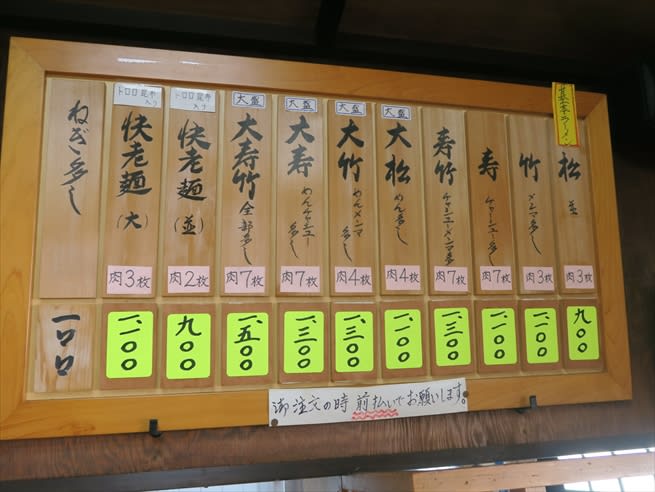 基本ラーメン
松 並
肉3枚
九〇〇
竹 メンマ多し
肉3枚
一、一〇〇
寿 チャーシュー多し
肉7枚
一、一〇〇
寿竹 チャーシューメンマ多
肉7枚
一、三〇〇
大盛
大松 めん多し
肉4枚
一、一〇〇
大盛
大竹 めんメンマ
多し
肉4枚
一、三〇〇
大盛
大寿 めんチャーシュー
多し
肉7枚
一、三〇〇
大盛
大寿竹 全部多し
肉7枚
一、五〇〇
トロロ昆布
入り
快老麺(並)
肉2枚
九〇〇
トロロ昆布
入り
快老麺(大)
肉3枚
一、一〇〇
ねぎ多し
一〇〇
御注文の時 前払いでお願いします。